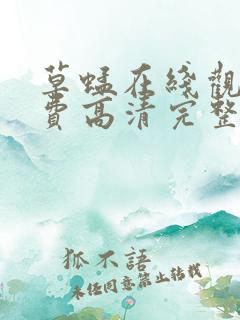 草蜢在綫觀
費高清完整
狐不語
未经同意禁止转载